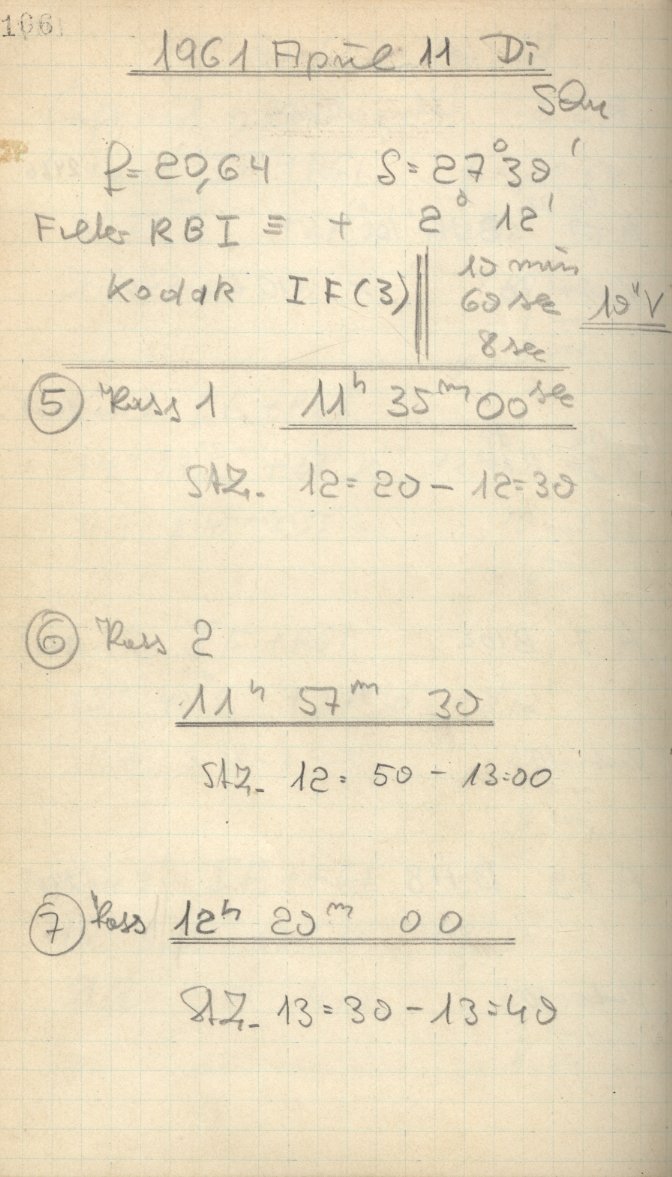 106
1961 April 11 Di
f=20,64 S=27° 30'
Filter RBI = + 2° 12'
Kodak IF(3) 10 min
60 sec 10" V
8 sec
5 Kass 1 11h 35m 00sec
StZ. 12=20 - 12=30
6 Kass 2
11h 57m 30
StZ. 12: 50 - 13:00
7 Kass 12h 20m 00
StZ. 13=30 - 13=40